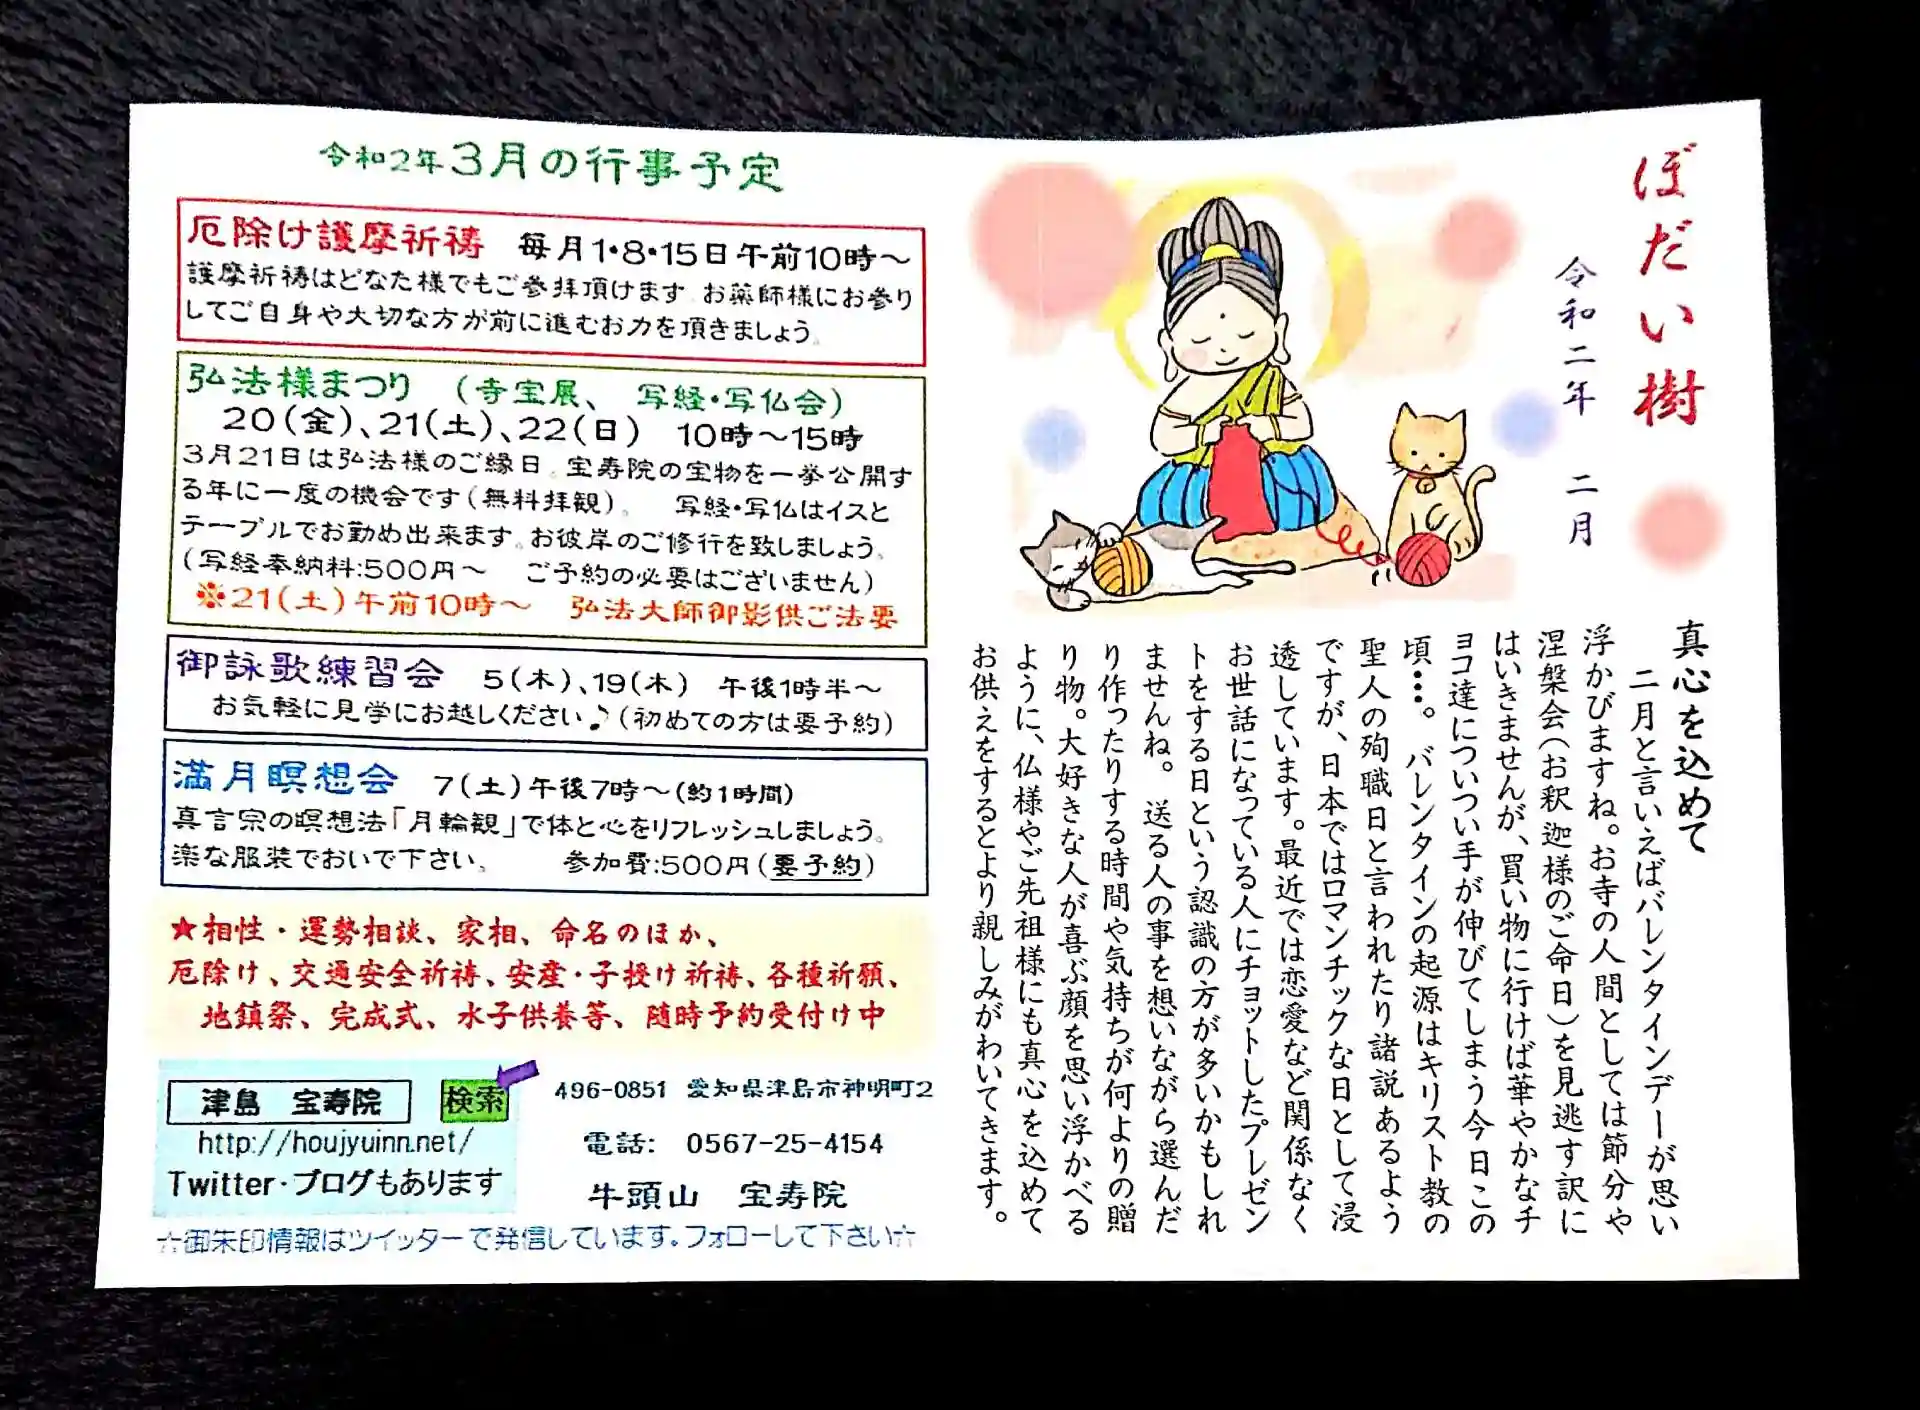 ぼだい樹
令和二年 二月
真心を込めて
二月と言いえばバレンタインデーが思い
浮かびますね。お寺の人間としては節分や
涅槃会(お釈迦様のご命日)を見逃す訳に
はいきませんが、買い物に行けば華やかなチ
ョコ達についつい手が伸びてしまう今日この
頃…。 バレンタインの起源はキリスト教の
聖人の殉職日と言われたり諸説あるよう
ですが、日本ではロマンチックな日として浸
透しています。最近では恋愛など関係なく
お世話になっている人にチョットしたプレゼン
トをする日という認識の方が多いかもしれ
ませんね。 送る人の事を想いながら選んだ
り作ったりする時間や気持ちが何よりの贈
り物。大好きな人が喜ぶ顔を思い浮かべる
ように、仏様やご先祖様にも真心を込めて
お供えをするとより親しみがわいてきます。
令和2年3月の行事予定
厄除け護摩祈祷 毎月1・8・15日午前10時～
護摩祈祷はどなた様でもご参拝頂けます。お薬師様にお参り
してご自身や大切な方が前に進むお力を頂きましょう。
弘法様まつり (寺宝展、 写経・写仏会)
20(金)、21(土)、22(日) 10時～15時
3月21日は弘法様のご縁日。宝寿院の宝物を一挙公開す
る年に一度の機会です(無料拝観)。 写経・写仏はイスと
テーブルでお勤め出来ます。お彼岸のご修行を致しましょう。
(写経奉納料:500円～ ご予約の必要はございません)
※21(土)午前10時～ 弘法大師御影供ご法要
御詠歌練習会 5(木)、19(木) 午後1時半～
お気軽に見学にお越しください♪(初めての方は要予約)
満月瞑想会 7(土)午後7時～(約1時間)
真言宗の瞑想法「月輪観」で体と心をリフレッシュしましょう。
楽な服装でおいで下さい。 参加費:500円(要予約)
★相性・運勢相談、家相、命名のほか、
厄除け、交通安全祈祷、安産・子授け祈祷、各種祈願、
地鎮祭、完成式、水子供養等、随時予約受付け中
津島 宝寿院 検索
http://houjyuinn.net/
Twitter・ブログもあります
496-0851 愛知県津島市神明町2
電話: 0567-25-4154
牛頭山 宝寿院
☆御朱印情報はツイッターで発信しています。フォローして下さい☆